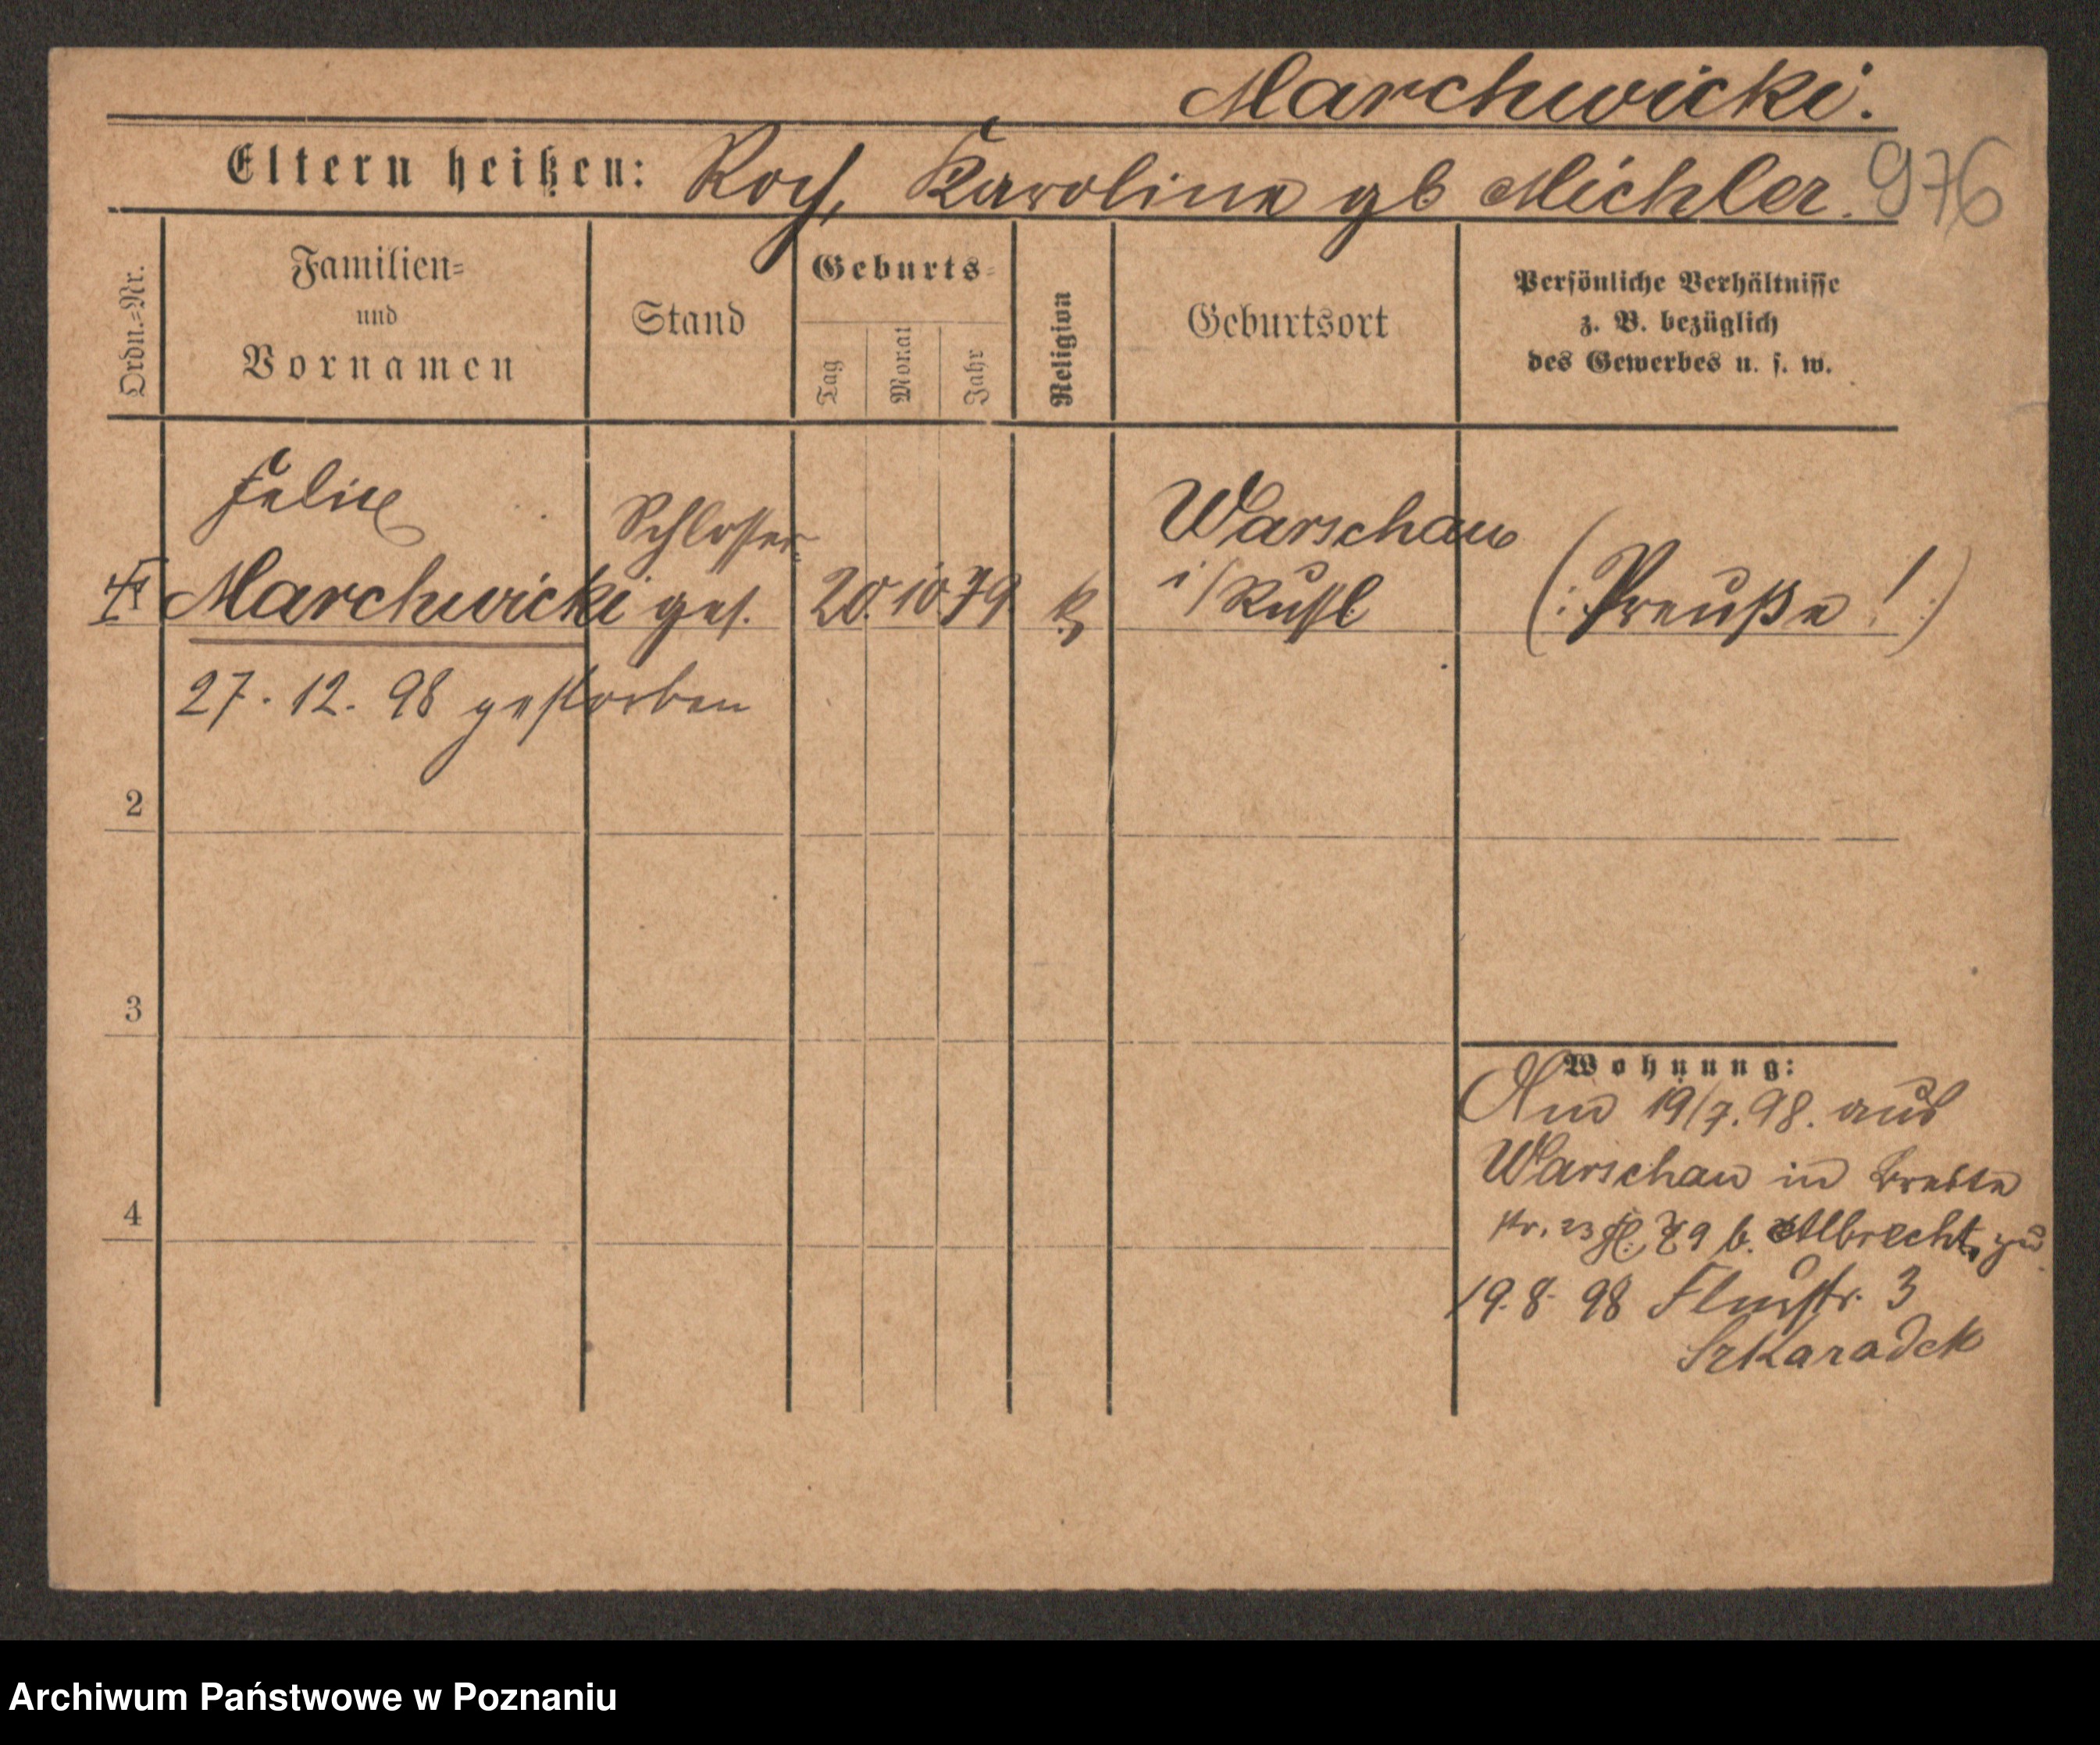 Marchwicki.
Eltern heißen: Roch, Karoline gb Michler.
976
Ordn.=Nr.
Familien=
und
Vornamen
Stand
Geburts=
Tag
Monat
Jahr
Religion
Geburtsort
Persönliche Verhältnisse
z. B. bezüglich
des Gewerbes u. s. w.
Felix
Marchwicki
Schlosser=
ges.
20. 10 79
k
Warschau
i/Rußl
(: Preuße ! :)
27. 12. 98 gestorben
2
3
4
Wohnung:
Am 19/7. 98. aus
Warschau in Breite
str. 23 b. Albrecht, zu
19. 8. 98 Flurstr. 3